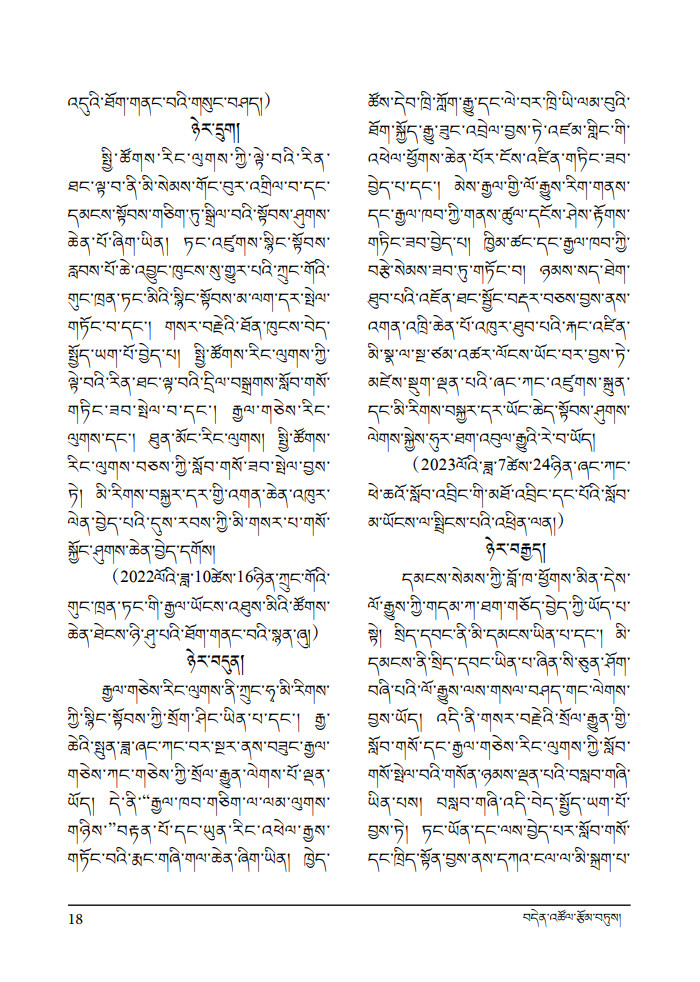 འདུའི་ཐོག་གནང་བའི་གསུང་བཤད།)
ཉེར་དྲུག།
སྤྱི་ཚོགས་རིང་ལུགས་ཀྱི་ལྟེ་བའི་རིན་
ཐང་ལྟ་བ་ནི་མི་སེམས་གོང་བུར་འགྲིལ་བ་དང་
དམངས་སྟོབས་གཅིག་ཏུ་སྒྲིལ་བའི་སྟོབས་ཤུགས་
ཆེན་པོ་ཞིག་ཡིན། ཏང་འཛུགས་སྙིང་སྟོབས་
རླབས་པོ་ཆེ་འབྱུང་ཁུངས་སུ་གྱུར་པའི་ཀྲུང་གོའི་
གུང་ཁྲན་ཏང་མིའི་སྙིང་སྟོབས་མ་ལག་དར་སྤེལ་
གཏོང་བ་དང་། གསར་བརྗེའི་ཐོན་ཁུངས་བེད་
སྤྱོད་ཡག་པོ་བྱེད་པ། སྤྱི་ཚོགས་རིང་ལུགས་ཀྱི་
ལྟེ་བའི་རིན་ཐང་ལྟ་བའི་དྲིལ་བསྒྲགས་སློབ་གསོ་
གཏིང་ཟབ་སྤེལ་བ་དང་། རྒྱལ་གཅེས་རིང་
ལུགས་དང་། ཐུན་མོང་རིང་ལུགས། སྤྱི་ཚོགས་
རིང་ལུགས་བཅས་ཀྱི་སློབ་གསོ་ཟབ་སྤེལ་བྱས་
ཏེ། མི་རིགས་བསྐྱར་དར་གྱི་འགན་ཆེན་འཁུར་
ལེན་བྱེད་པའི་དུས་རབས་ཀྱི་མི་གསར་པ་གསོ་
སྐྱོང་ཤུགས་ཆེན་བྱེད་དགོས།
(2022ལོའི་ཟླ་10ཚེས་16ཉིན་ཀྲུང་གོའི་
གུང་ཁྲན་ཏང་གི་རྒྱལ་ཡོངས་འཐུས་མིའི་ཚོགས་
ཆེན་ཐེངས་ཉི་ཤུ་པའི་ཐོག་གནང་བའི་སྙན་ཞུ།)
ཉེར་བདུན།
རྒྱལ་གཅེས་རིང་ལུགས་ནི་ཀྲུང་ཧྭ་མི་རིགས་
ཀྱི་སྙིང་སྟོབས་ཀྱི་སྲོག་ཤིང་ཡིན་པ་དང་། རྒྱ་
ཆེའི་སྤུན་ཟླ་ཞང་ཀང་བར་སྔར་ནས་བཟུང་རྒྱལ་
གཅེས་ཀང་གཅེས་ཀྱི་སྲོལ་རྒྱུན་ལེགས་པོ་ལྡན་
ཡོད། དེ་ནི་“རྒྱལ་ཁབ་གཅིག་ལ་ལམ་ལུགས་
གཉིས་”བརྟན་པོ་དང་ཡུན་རིང་འཕེལ་རྒྱས་
གཏོང་བའི་རྨང་གཞི་གལ་ཆེན་ཞིག་ཡིན། ཁྱེད་
ཚོས་དེབ་ཁྲི་ཀློག་རྒྱུ་དང་ལེ་བར་ཁྲི་ཡི་ལམ་བུའི་
ཐོག་སྐྱོད་རྒྱུ་ཟུང་འབྲེལ་བྱས་ཏེ་འཛམ་གླིང་གི་
འཕེལ་ཕྱོགས་ཆེན་པོར་ངོས་འཛིན་གཏིང་ཟབ་
བྱེད་པ་དང་། མེས་རྒྱལ་གྱི་ལོ་རྒྱུས་རིག་གནས་
དང་རྒྱལ་ཁབ་ཀྱི་གནས་ཚུལ་དངོས་ཤེས་རྟོགས་
གཏིང་ཟབ་བྱེད་པ། ཁྱིམ་ཚང་དང་རྒྱལ་ཁབ་ཀྱི་
བརྩེ་སེམས་ཟབ་ཏུ་གཏོང་བ། ཉམས་སད་ཐེག་
ཐུབ་པའི་འཇོན་ཐང་སྦྱོང་བརྡར་བཅས་བྱས་ནས་
འགན་འཁྲི་ཆེན་པོ་འཁུར་ཐུབ་པའི་རྐང་འཛིན་
མི་སྣ་ལ་སྔ་ཙམ་འཚར་ལོངས་ཡོང་བར་བྱས་ཏེ་
མཛེས་སྡུག་ལྡན་པའི་ཞང་ཀང་འཛུགས་སྐྲུན་
དང་མི་རིགས་བསྐྱར་དར་ཡོང་ཆེད་སྟོབས་ཤུགས་
ལེགས་སྐྱེས་ཧུར་ཐག་འབུལ་རྒྱུའི་རེ་བ་ཡོད།
(2023ལོའི་ཟླ་7ཚེས་24ཉིན་ཞང་ཀང་
ཕེ་ཆའོ་སློབ་འབྲིང་གི་མཐོ་འབྲིང་དང་པོའི་སློབ་
མ་ཡོངས་ལ་སྤྲིངས་པའི་འཕྲིན་ལན།)
ཉེར་བརྒྱད།
དམངས་སེམས་ཀྱི་བློ་ཁ་ཕྱོགས་མིན་དེས་
ལོ་རྒྱུས་ཀྱི་གདམ་ཀ་ཐག་གཅོད་བྱེད་ཀྱི་ཡོད་པ་
སྟེ། སྲིད་དབང་ནི་མི་དམངས་ཡིན་པ་དང་། མི་
དམངས་ནི་སྲིད་དབང་ཡིན་པ་ཞིན་སི་ཅུན་ཤོག་
བཞི་པའི་ལོ་རྒྱུས་ལས་གསལ་བཤད་གང་ལེགས་
བྱས་ཡོད། འདི་ནི་གསར་བརྗེའི་སྲོལ་རྒྱུན་གྱི་
སློབ་གསོ་དང་རྒྱལ་གཅེས་རིང་ལུགས་ཀྱི་སློབ་
གསོ་སྤེལ་བའི་གསོན་ཉམས་ལྡན་པའི་བསླབ་གཞི་
ཡིན་པས། བསླབ་གཞི་འདི་བེད་སྤྱོད་ཡག་པོ་
བྱས་ཏེ། ཏང་ཡོན་དང་ལས་བྱེད་པར་སློབ་གསོ་
དང་ཁྲིད་སྟོན་བྱས་ནས་དཀའ་ངལ་ལ་མི་སྐྲག་པ་
18
བདེན་འཚོལ་རྩོམ་བཏུས།